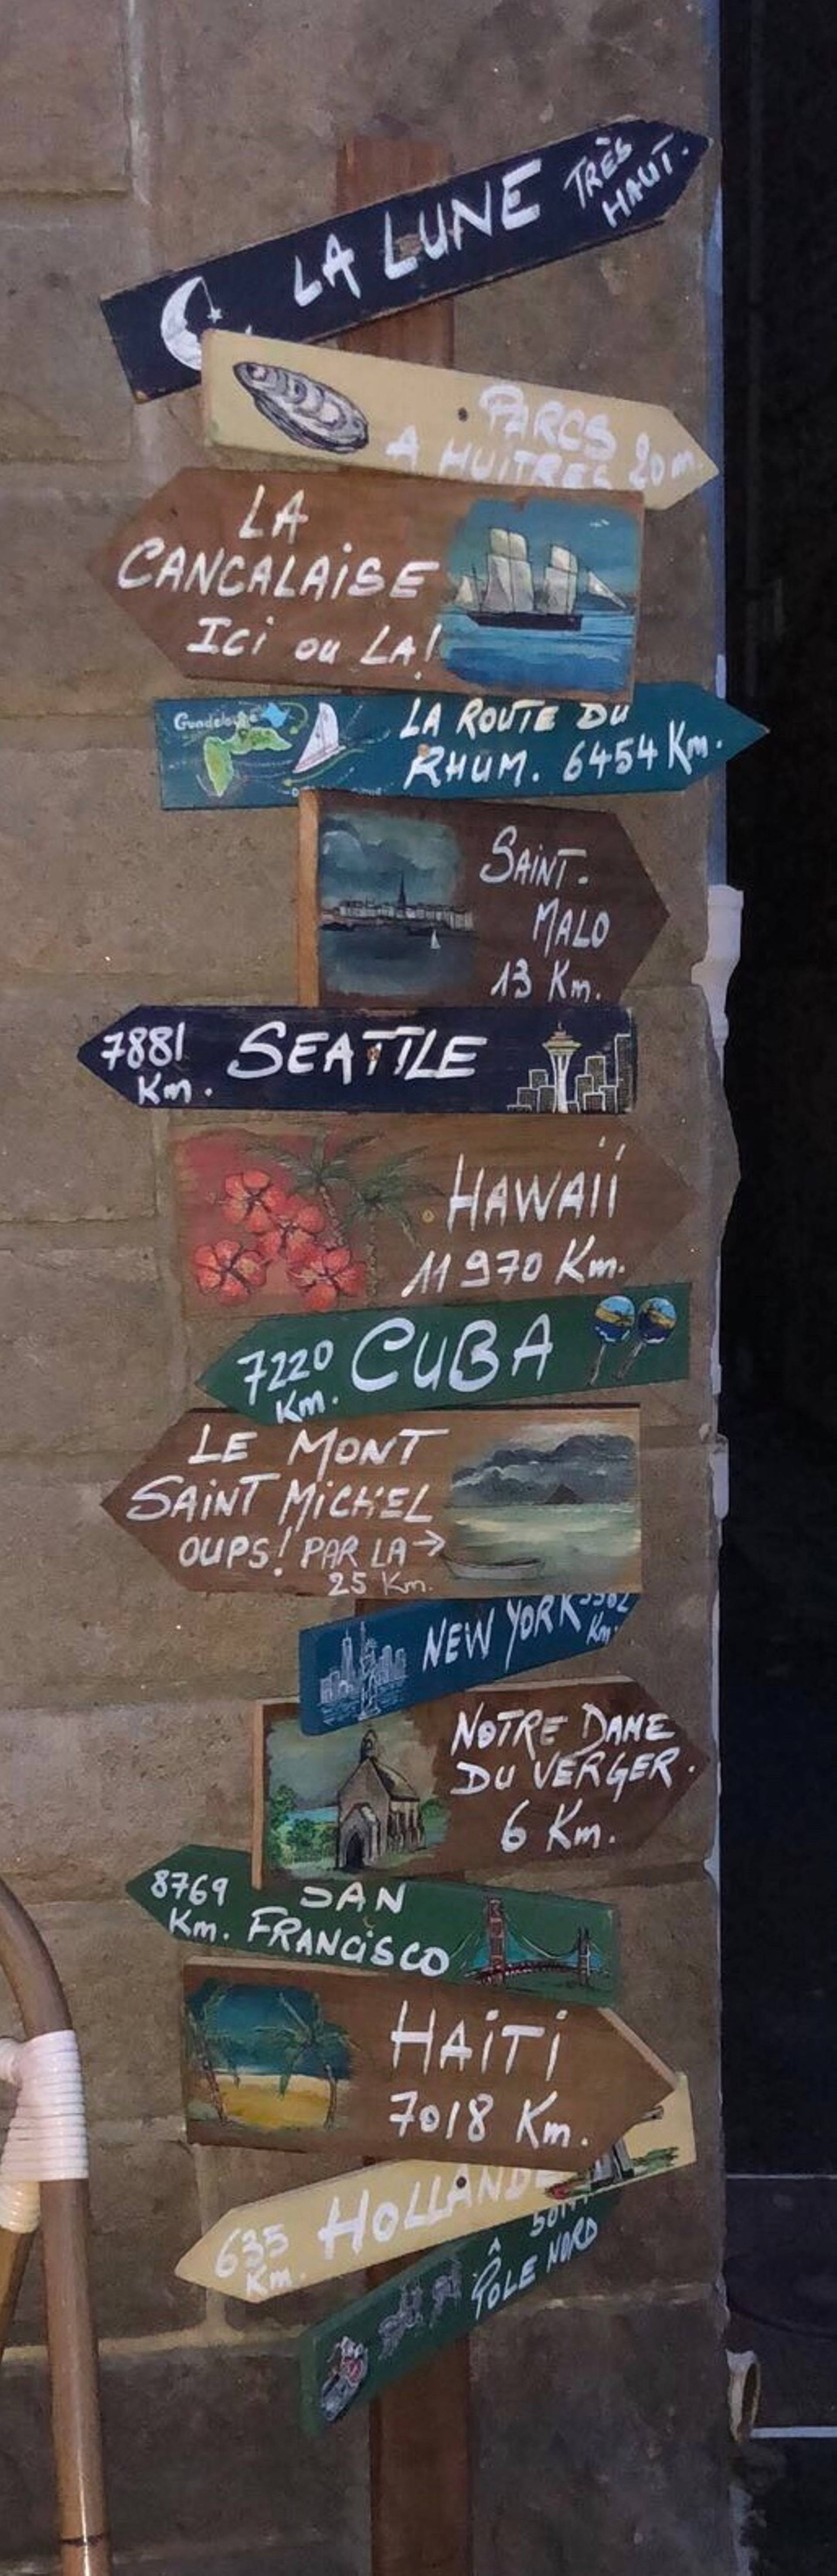 LA LUNE TRÈS
HAUT.
PARCS
A HUITRES 20m.
LA
CANCALAISE
Ici ou LA!
Guadeloupe
LA ROUTE DU
RHUM. 6454 Km.
SAINT-
MALO
13 Km.
7881
Km.
SEATTLE
HAWAII
11970 Km.
7220
Km.
CUBA
LE MONT
SAINT MICHEL
OUPS! PAR LA →
25 Km.
NEW YORK
Km.
NOTRE DAME
DU VERGER.
6 Km.
8769
Km.
SAN
FRANCISCO
HAITI
7018 Km.
635
Km.
HOLLANDE
PÔLE NORD